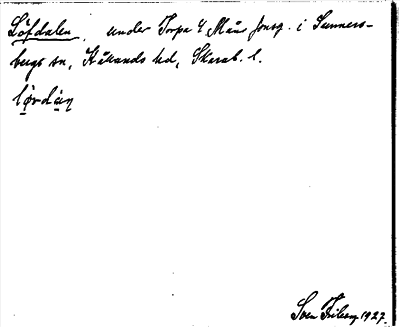 Löfdalen, under Torpa 4 Mån Jonsg. i Sunners-
bergs sn, Kållands hd, Skarab. l.
lø̀vdàn̥
Sven Friberg 1927.